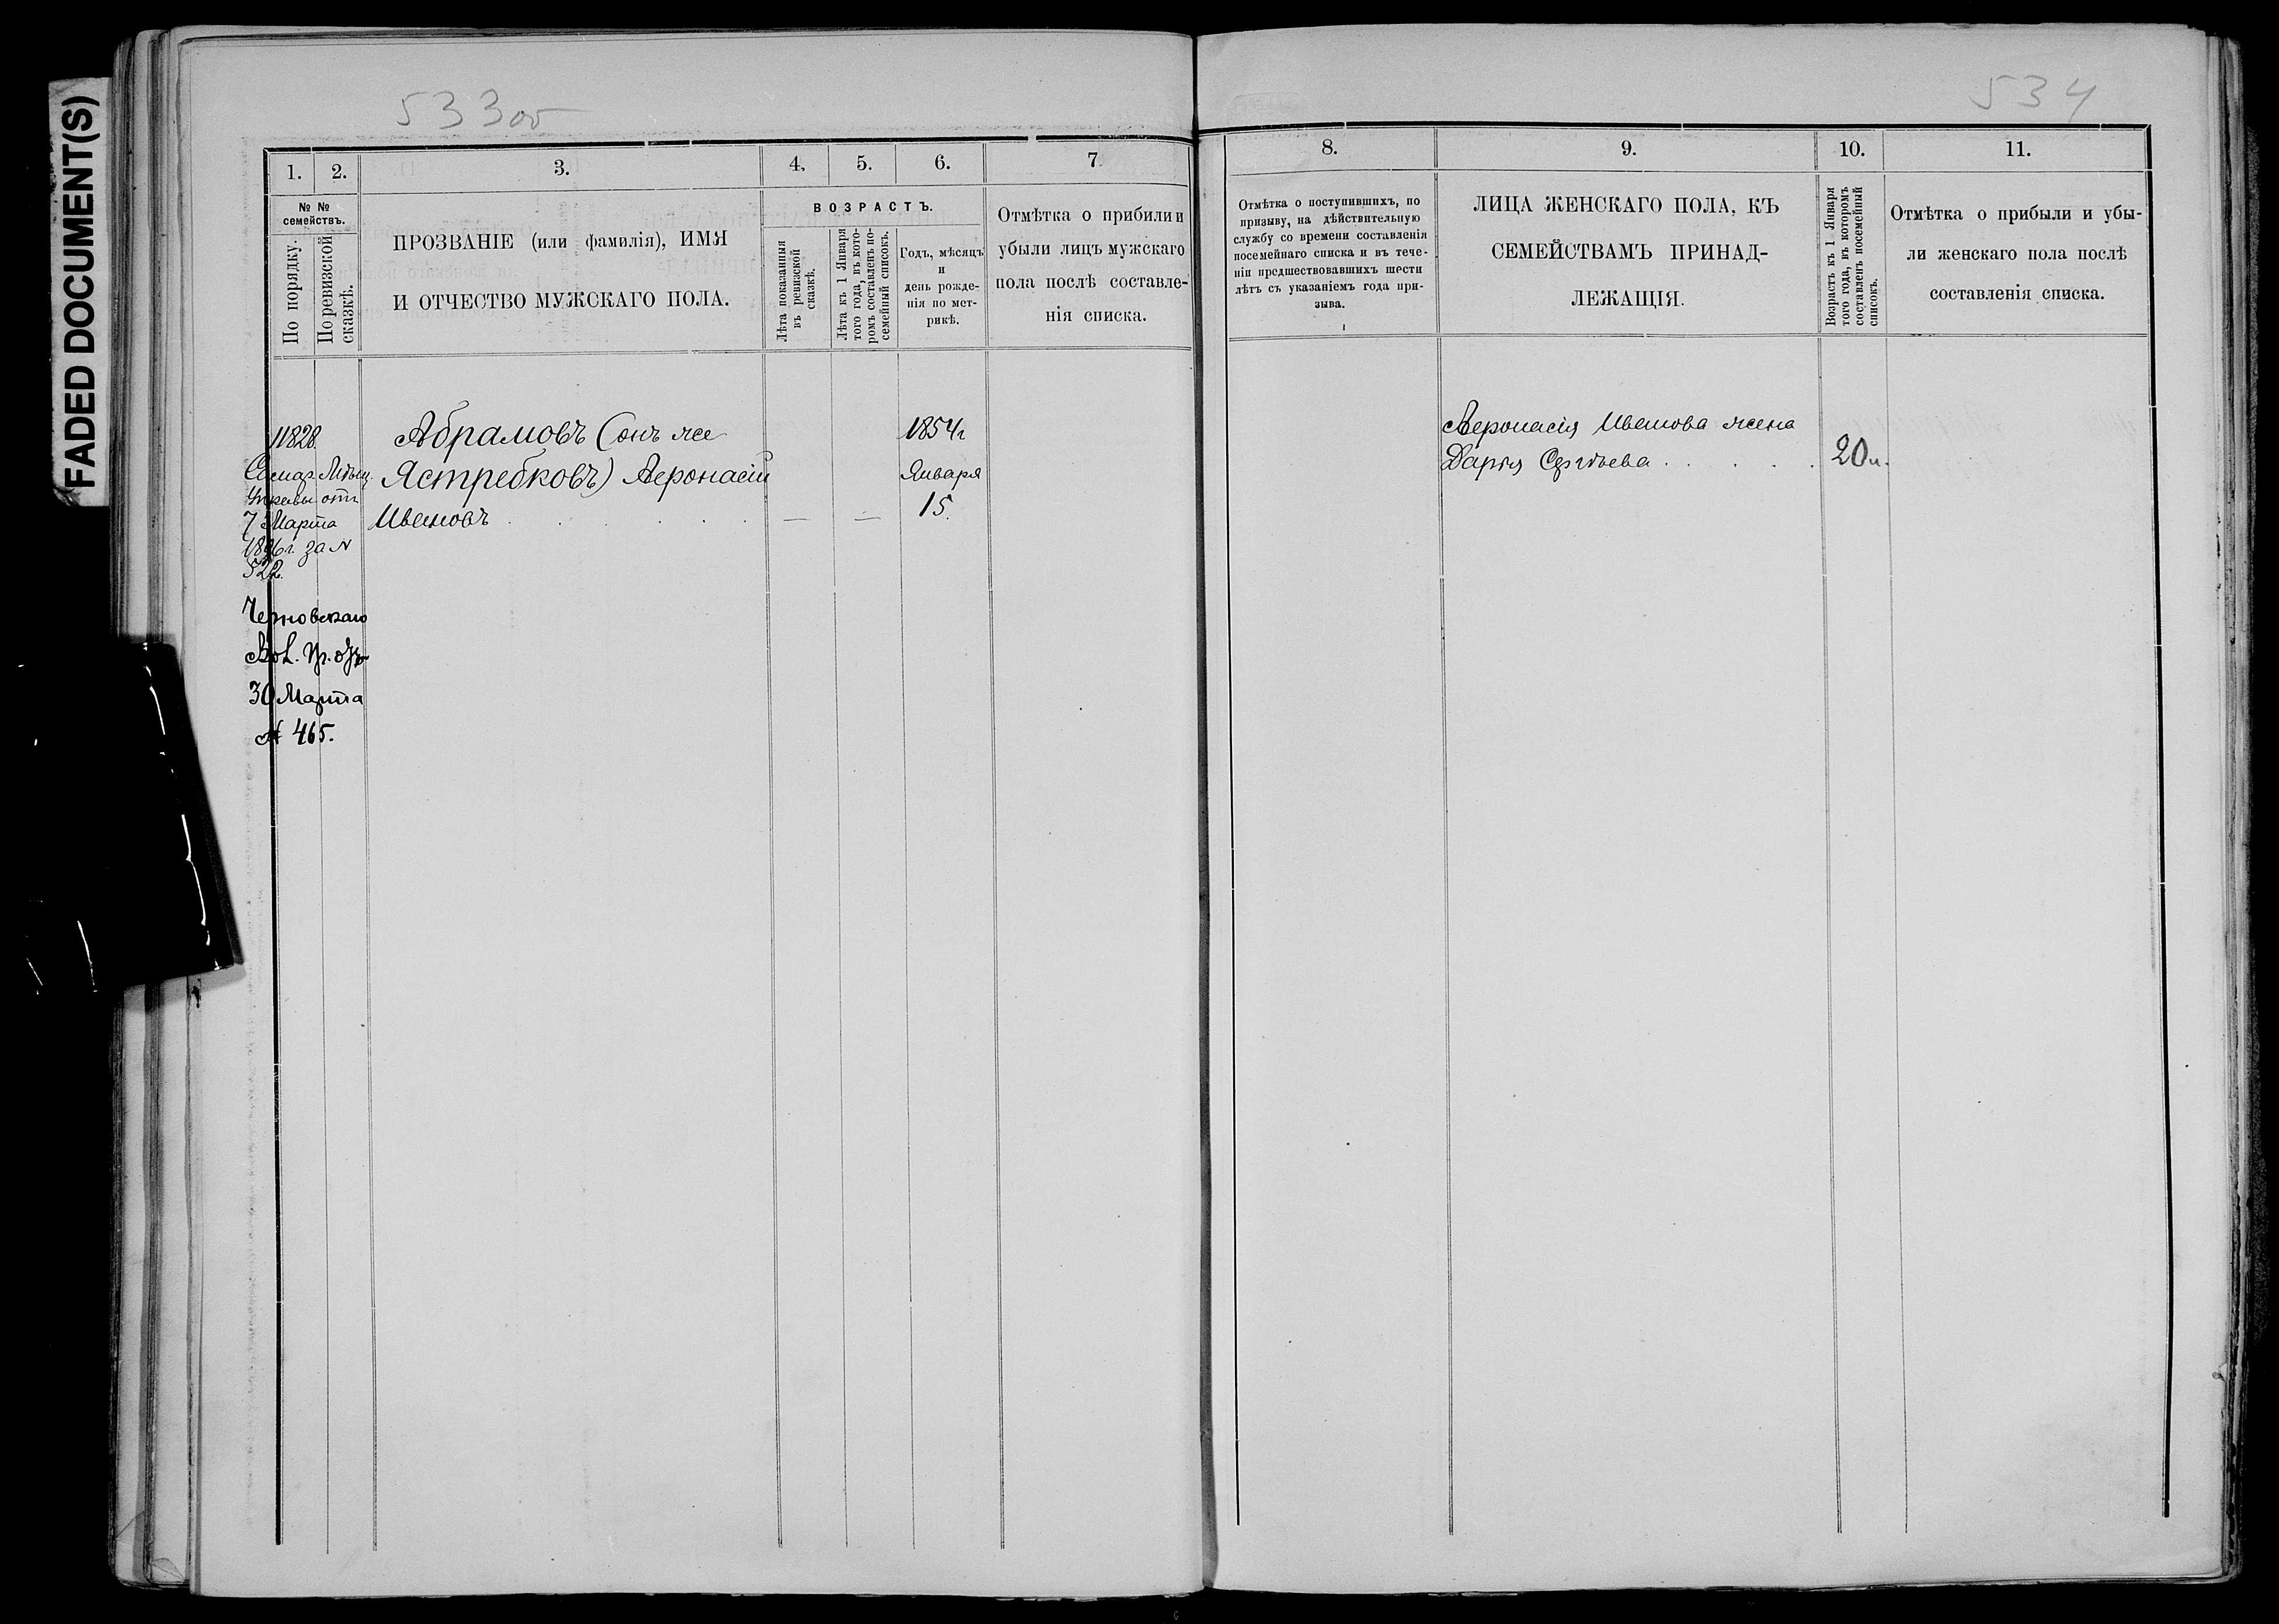 FADED DOCUMENT(S)
533об
1.
2.
3.
4.
5.
6.
7.
№ №
семействъ.
По порядку.
По ревизской
сказкѣ.
ПРОЗВАНІЕ (или фамилія), ИМЯ
И ОТЧЕСТВО МУЖСКАГО ПОЛА.
ВОЗРАСТЪ.
Лѣта показанныя
въ ревизской
сказкѣ.
Лѣта къ 1 Января
того года, въ кото-
ромъ составленъ по-
семейный списокъ.
Годъ, мѣсяцъ
и
день рожде-
нія по мет-
рикѣ.
Отмѣтка о прибили и
убыли лицъ мужскаго
пола послѣ составле-
нія списка.
11828.
Самар. Мѣщ.
Управы отъ
7 Марта
1896 г. за №
522.
Черновскаго
Вол. Пр. отъ
30 Марта
№ 465.
Абрамовъ (онъ же
Ястребковъ) Аѳонасій
Ивановъ . . . . .
— —
1854 г
Января
15.
534
8.
9.
10.
11.
Отмѣтка о поступившихъ, по
призыву, на дѣйствительную
службу со времени составленія
посемейнаго списка и въ тече-
ніи предшествовавшихъ шести
лѣтъ съ указаніемъ года при-
зыва.
ЛИЦА ЖЕНСКАГО ПОЛА, КЪ
СЕМЕЙСТВАМЪ ПРИНАД-
ЛЕЖАЩІЯ.
Возрастъ къ 1 Января
того года, въ которомъ
составленъ посемейный
списокъ.
Отмѣтка о прибыли и убы-
ли женскаго пола послѣ
составленія списка.
Аѳонасія Иванова жена
Дарья Сергѣева . . . . . 20 л.